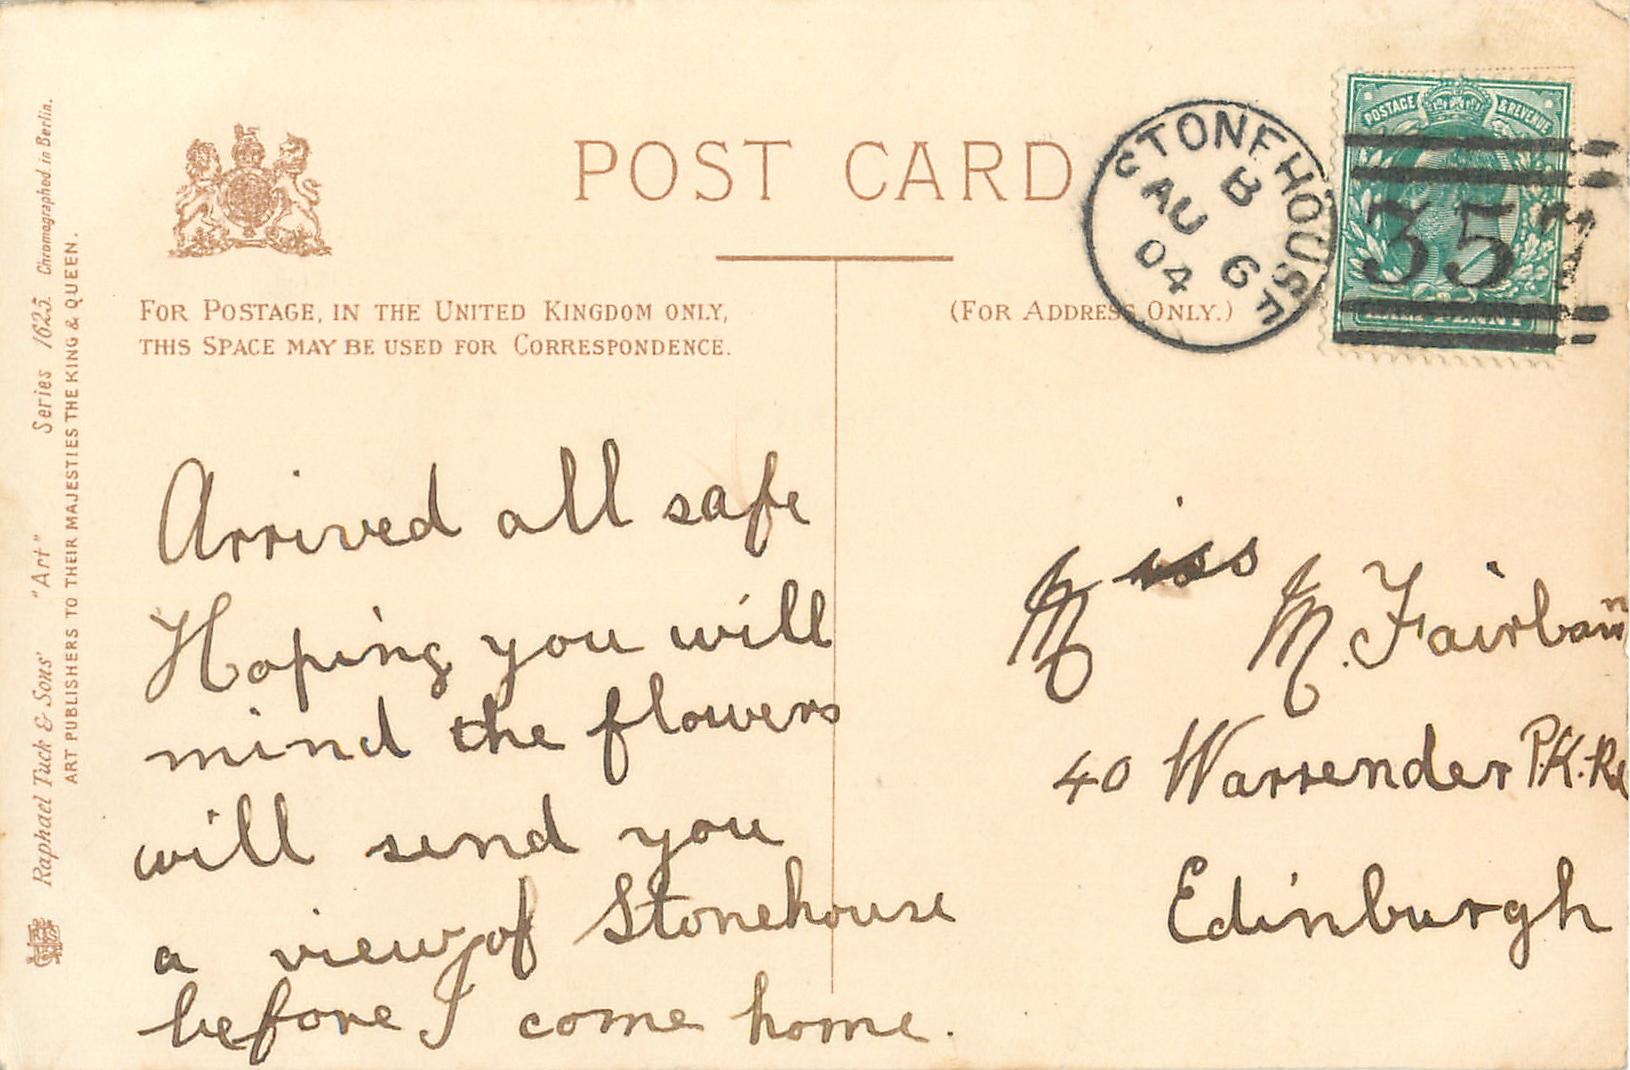 Raphael Tuck & Sons' "Art" Series 1625. Chromographed in Berlin.
ART PUBLISHERS TO THEIR MAJESTIES THE KING & QUEEN.
POST CARD
FOR POSTAGE, IN THE UNITED KINGDOM ONLY,
THIS SPACE MAY BE USED FOR CORRESPONDENCE.
(FOR ADDRESS ONLY.)
STONEHOUSE
B
AU 6
04
POSTAGE & REVENUE
357
HALFPENNY
Arrived all safe
Hoping you will
mind the flowers
will send you
a view of Stonehouse
before I come home.
Miss M. Fairbairn
40 Warrender P.K. Rd
Edinburgh